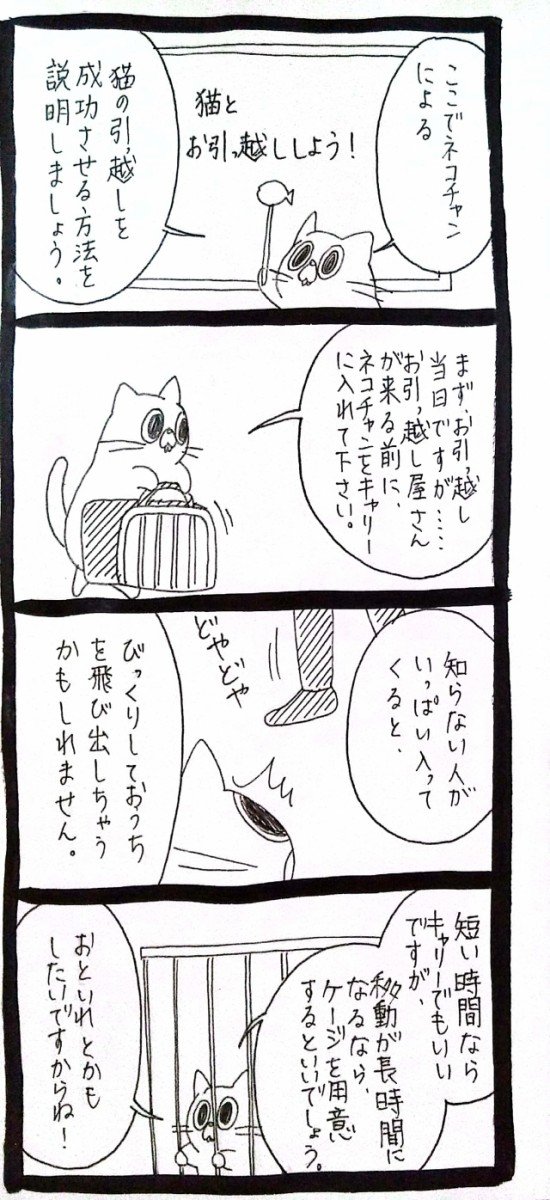 ここでネコチャン
による
猫と
お引っ越ししよう！
猫の引っ越しを
成功させる方法を
説明しましょう。
まず、お引っ越し
当日ですが……
お引っ越し屋さん
が来る前に、
ネコチャンをキャリー
に入れて下さい。
知らない人が
いっぱい入って
くると、
どやどや
びっくりしておうち
を飛び出しちゃう
かもしれません。
短い時間なら
キャリーでもいい
ですが、
移動が長時間に
なるなら、
ケージを用意
するといいでしょう。
おといれとかも
したいですからね！